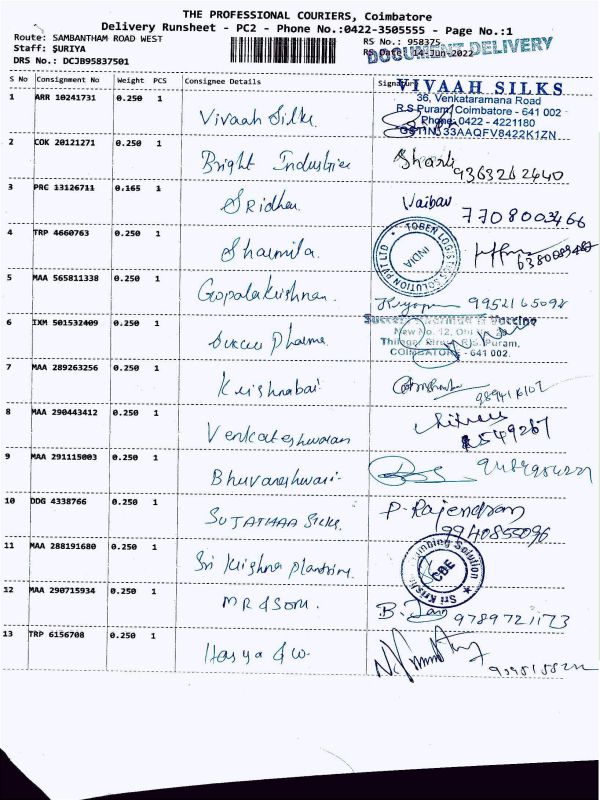 THE PROFESSIONAL COURIERS, Coimbatore
Delivery Runsheet - PC2 - Phone No.:0422-3505555 - Page No.:1
Route: SAMBANTHAM ROAD WEST
RS No.: 958375
Staff: SURIYA
DOCUMENT DELIVERY
RS Date: 14-Jun-2022
DRS No.: DCJB95837501
S No Consignment No Weight PCS Consignee Details Signature
VIVAAH SILKS
36, Venkataramana Road
R.S Puram, Coimbatore - 641 002
Phone: 0422 - 4221180
GSTIN: 33AAQFV8422K1ZN
1 ARR 10241731 0.250 1 Vivaah Silks
2 COK 20121271 0.250 1 Bright Industries 9363262640
3 PRC 13126711 0.165 1 Sridhar Vaibav 7708003466
4 TRP 4660763 0.250 1 Sharmila
TOBEN LOGISTICS SOLUTION PVT LTD INDIA
5 MAA 565811338 0.250 1 Gopalakrishnan 9952165098
6 IXM 501532409 0.250 1 Pharma
Vaccine
New No. 12,
R.S. Puram,
COIMBATORE - 641 002.
7 MAA 289263256 0.250 1 Krishnabai
8 MAA 290443412 0.250 1 Venkateshwaran
9 MAA 291115003 0.250 1 Bhuvaneshwari
10 DDG 4338766 0.250 1 SUJATHAA Silks P. Rajendran 9940855096
11 MAA 288191680 0.250 1 Sri Krishna
Solution CBE Sri
12 MAA 290715934 0.250 1 MR & Sons. 9789721173
13 TRP 6156708 0.250 1